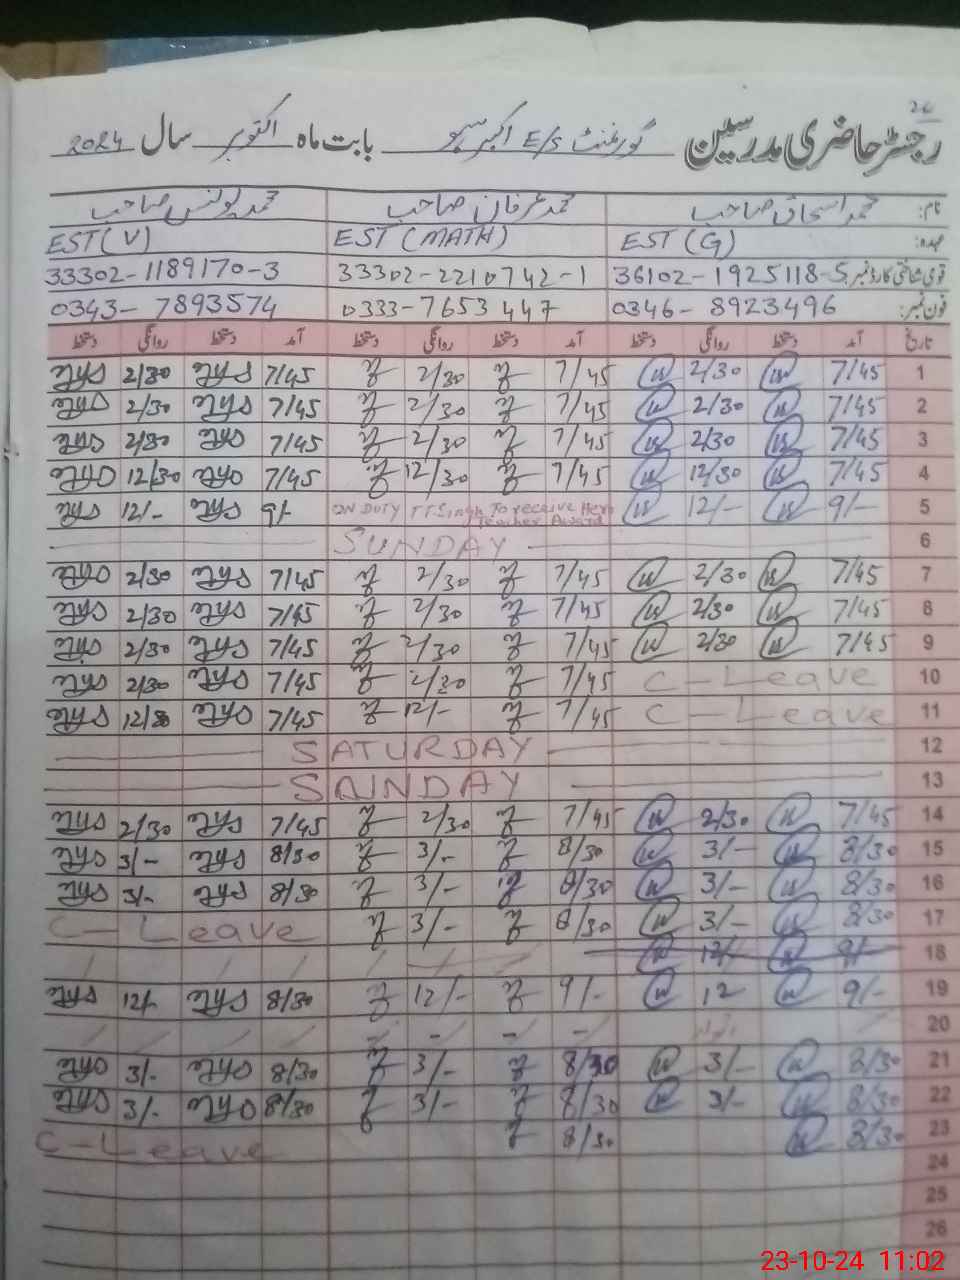 26
رجسٹر حاضری مدرسین گورنمنٹ E/S اکبر بابت ماہ اکتوبر سال 2024
نام: محمد اسحاق صاحب محمد عرفان صاحب محمد یونس صاحب
عہدہ: EST (G) EST (MATH) EST (V)
قومی شناختی کارڈ نمبر: 36102-1925118-5 33302-2210742-1 33302-1189170-3
فون نمبر: 0346-8923496 0333-7653447 0343-7893574
تاریخ آمد دستخط روانگی دستخط آمد دستخط روانگی دستخط آمد دستخط روانگی دستخط
1 7/45 2/30 7/45 2/30 7/45 2/30
2 7/45 2/30 7/45 2/30 7/45 2/30
3 7/45 2/30 7/45 2/30 7/45 2/30
4 7/45 12/30 7/45 12/30 7/45 12/30
5 9/- 12/- ON DUTY T T Singh To receive Hero Teacher Award 9/- 12/-
6 SUNDAY
7 7/45 2/30 7/45 2/30 7/45 2/30
8 7/45 2/30 7/45 2/30 7/45 2/30
9 7/45 2/30 7/45 2/30 7/45 2/30
10 C-Leave 7/45 2/30 7/45 2/30
11 C-Leave 7/45 12/- 7/45 12/30
12 SATURDAY
13 SUNDAY
14 7/45 2/30 7/45 2/30 7/45 2/30
15 8/30 3/- 8/30 3/- 8/30 3/-
16 8/30 3/- 8/30 3/- 8/30 3/-
17 8/30 3/- 8/30 3/- C-Leave
18 9/- 12/-
19 9/- 12 9/- 12/- 8/30 12/-
20
21 8/30 3/- 8/30 3/- 8/30 3/-
22 8/30 3/- 8/30 3/- 8/30 3/-
23 8/30 8/30 C-Leave
24
25
26
23-10-24 11:02